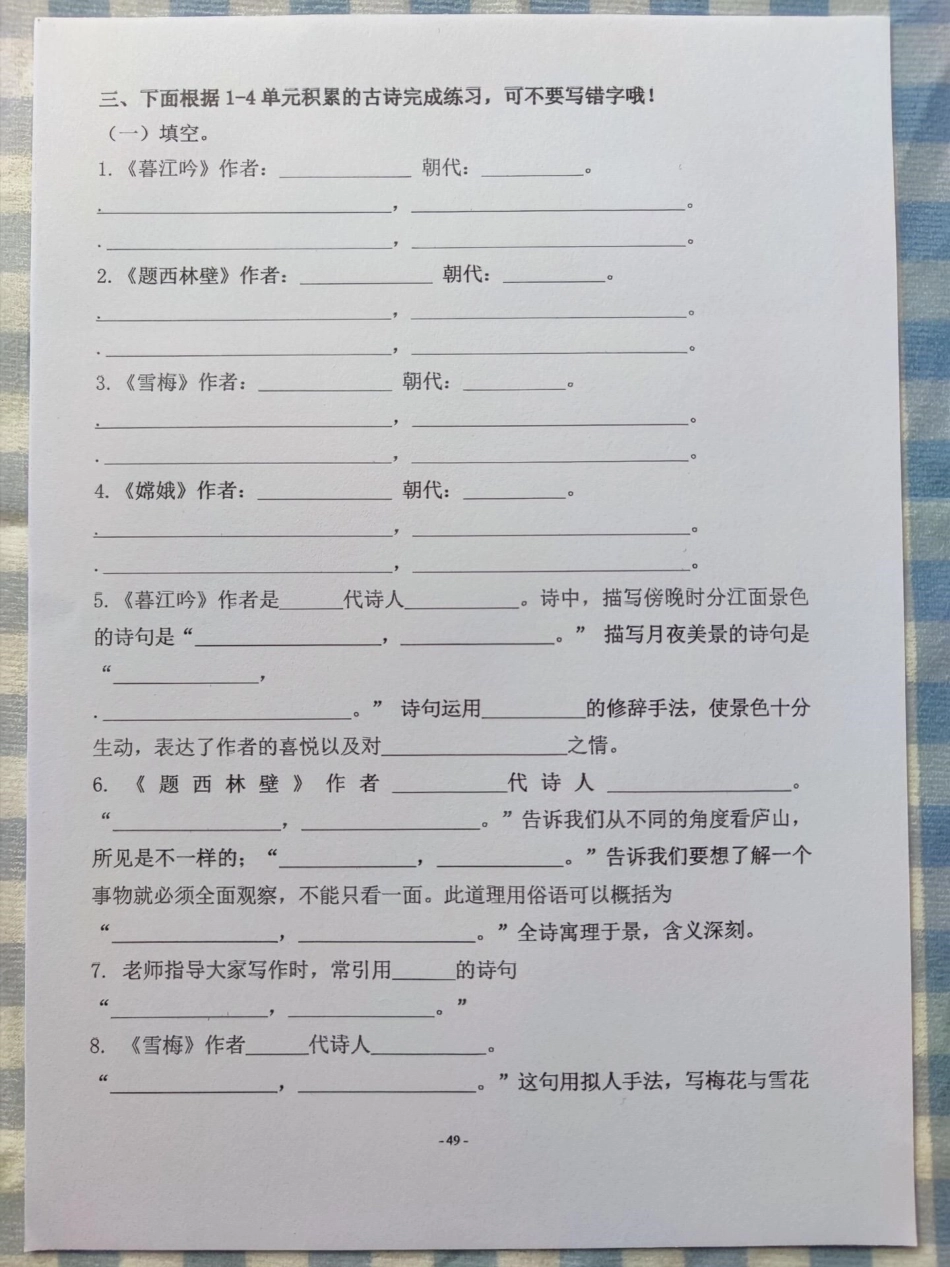 三、下面根据 1-4 单元积累的古诗完成练习，可不要写错字哦！
（一）填空。
1.《暮江吟》作者：____________ 朝代：_________。
.__________________________，_________________________。
.__________________________，_________________________。
2.《题西林壁》作者：____________ 朝代：_________。
.__________________________，_________________________。
.__________________________，_________________________。
3.《雪梅》作者：____________ 朝代：_________。
.__________________________，_________________________。
.__________________________，_________________________。
4.《嫦娥》作者：____________ 朝代：_________。
.__________________________，_________________________。
.__________________________，_________________________。
5.《暮江吟》作者是______代诗人___________。诗中，描写傍晚时分江面景色
的诗句是“__________________，_______________。” 描写月夜美景的诗句是
“______________，
.________________________。” 诗句运用__________的修辞手法，使景色十分
生动，表达了作者的喜悦以及对__________________之情。
6. 《 题 西 林 壁 》 作 者 ___________代 诗 人 ____________________。
“________________，_________________。”告诉我们从不同的角度看庐山，
所见是不一样的；“_____________，____________。”告诉我们要想了解一个
事物就必须全面观察，不能只看一面。此道理用俗语可以概括为
“________________，_________________。”全诗寓理于景，含义深刻。
7. 老师指导大家写作时，常引用______的诗句
“_______________，______________。”
8. 《雪梅》作者______代诗人___________。
“________________，_________________。”这句用拟人手法，写梅花与雪花
- 49 -